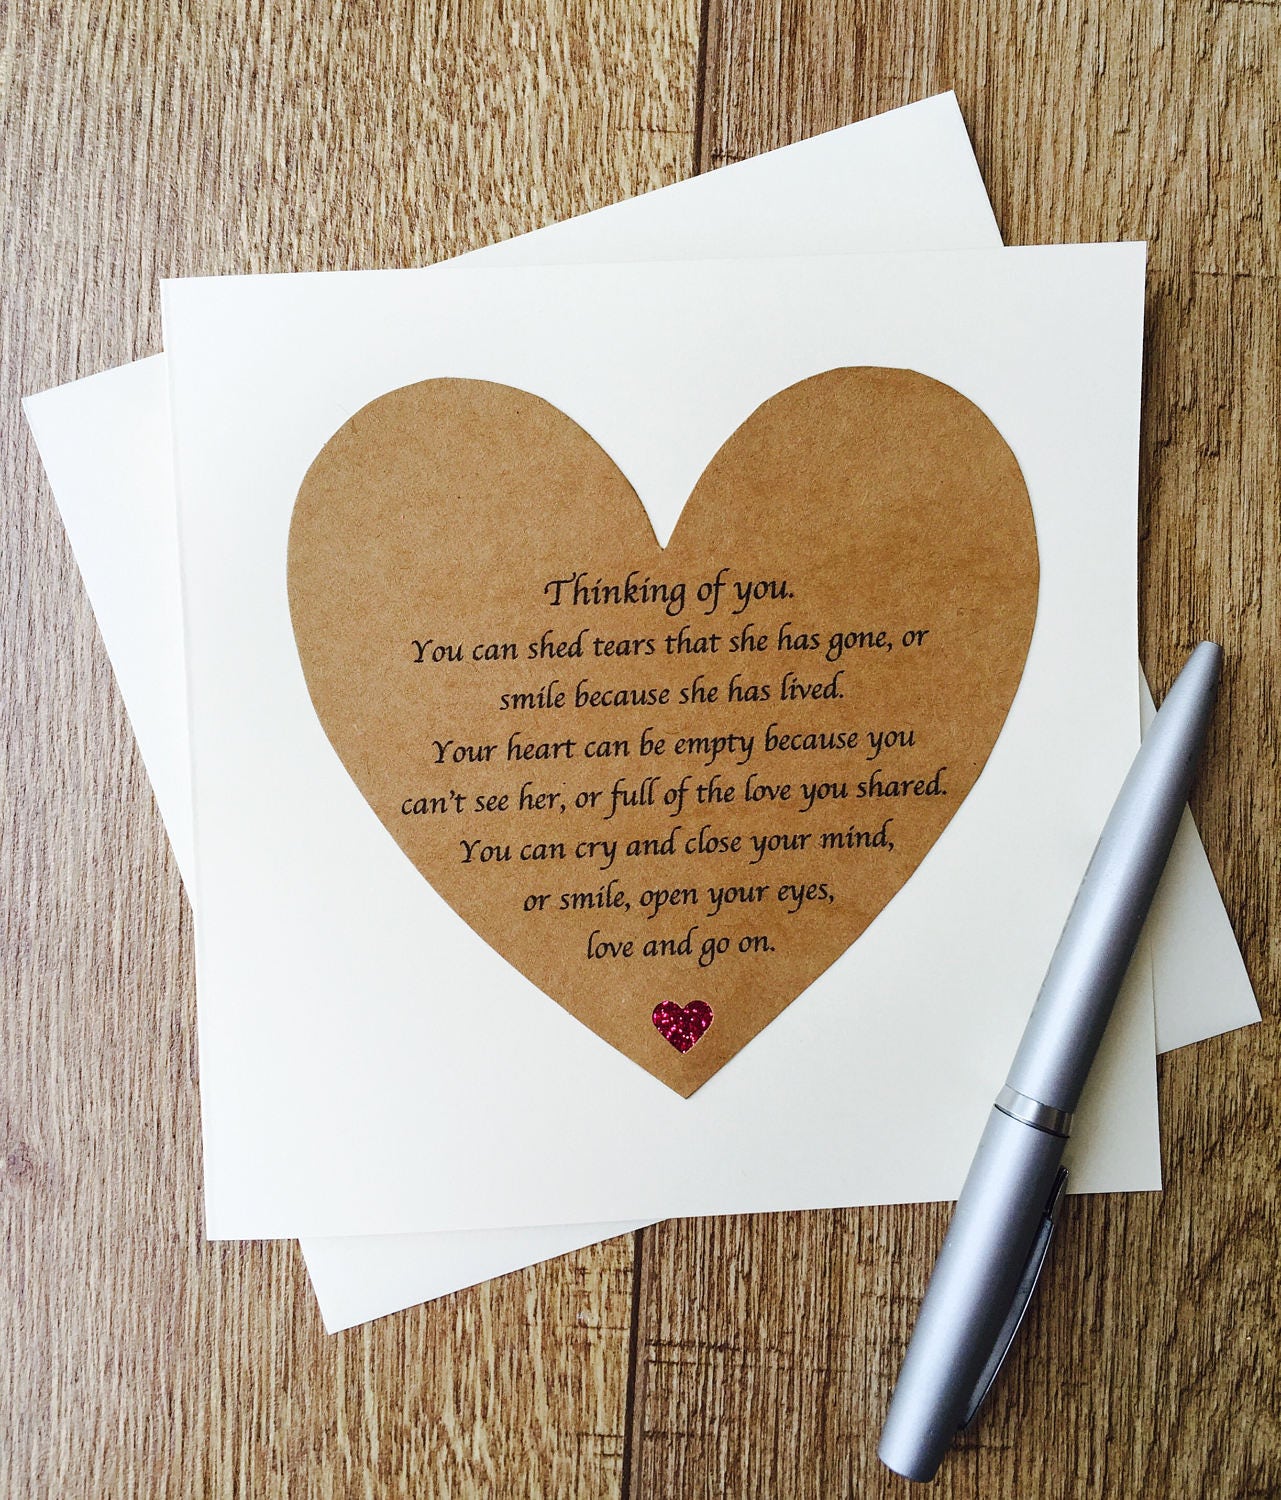 Thinking of you.
You can shed tears that she has gone, or
smile because she has lived.
Your heart can be empty because you
can't see her, or full of the love you shared.
You can cry and close your mind,
or smile, open your eyes,
love and go on.